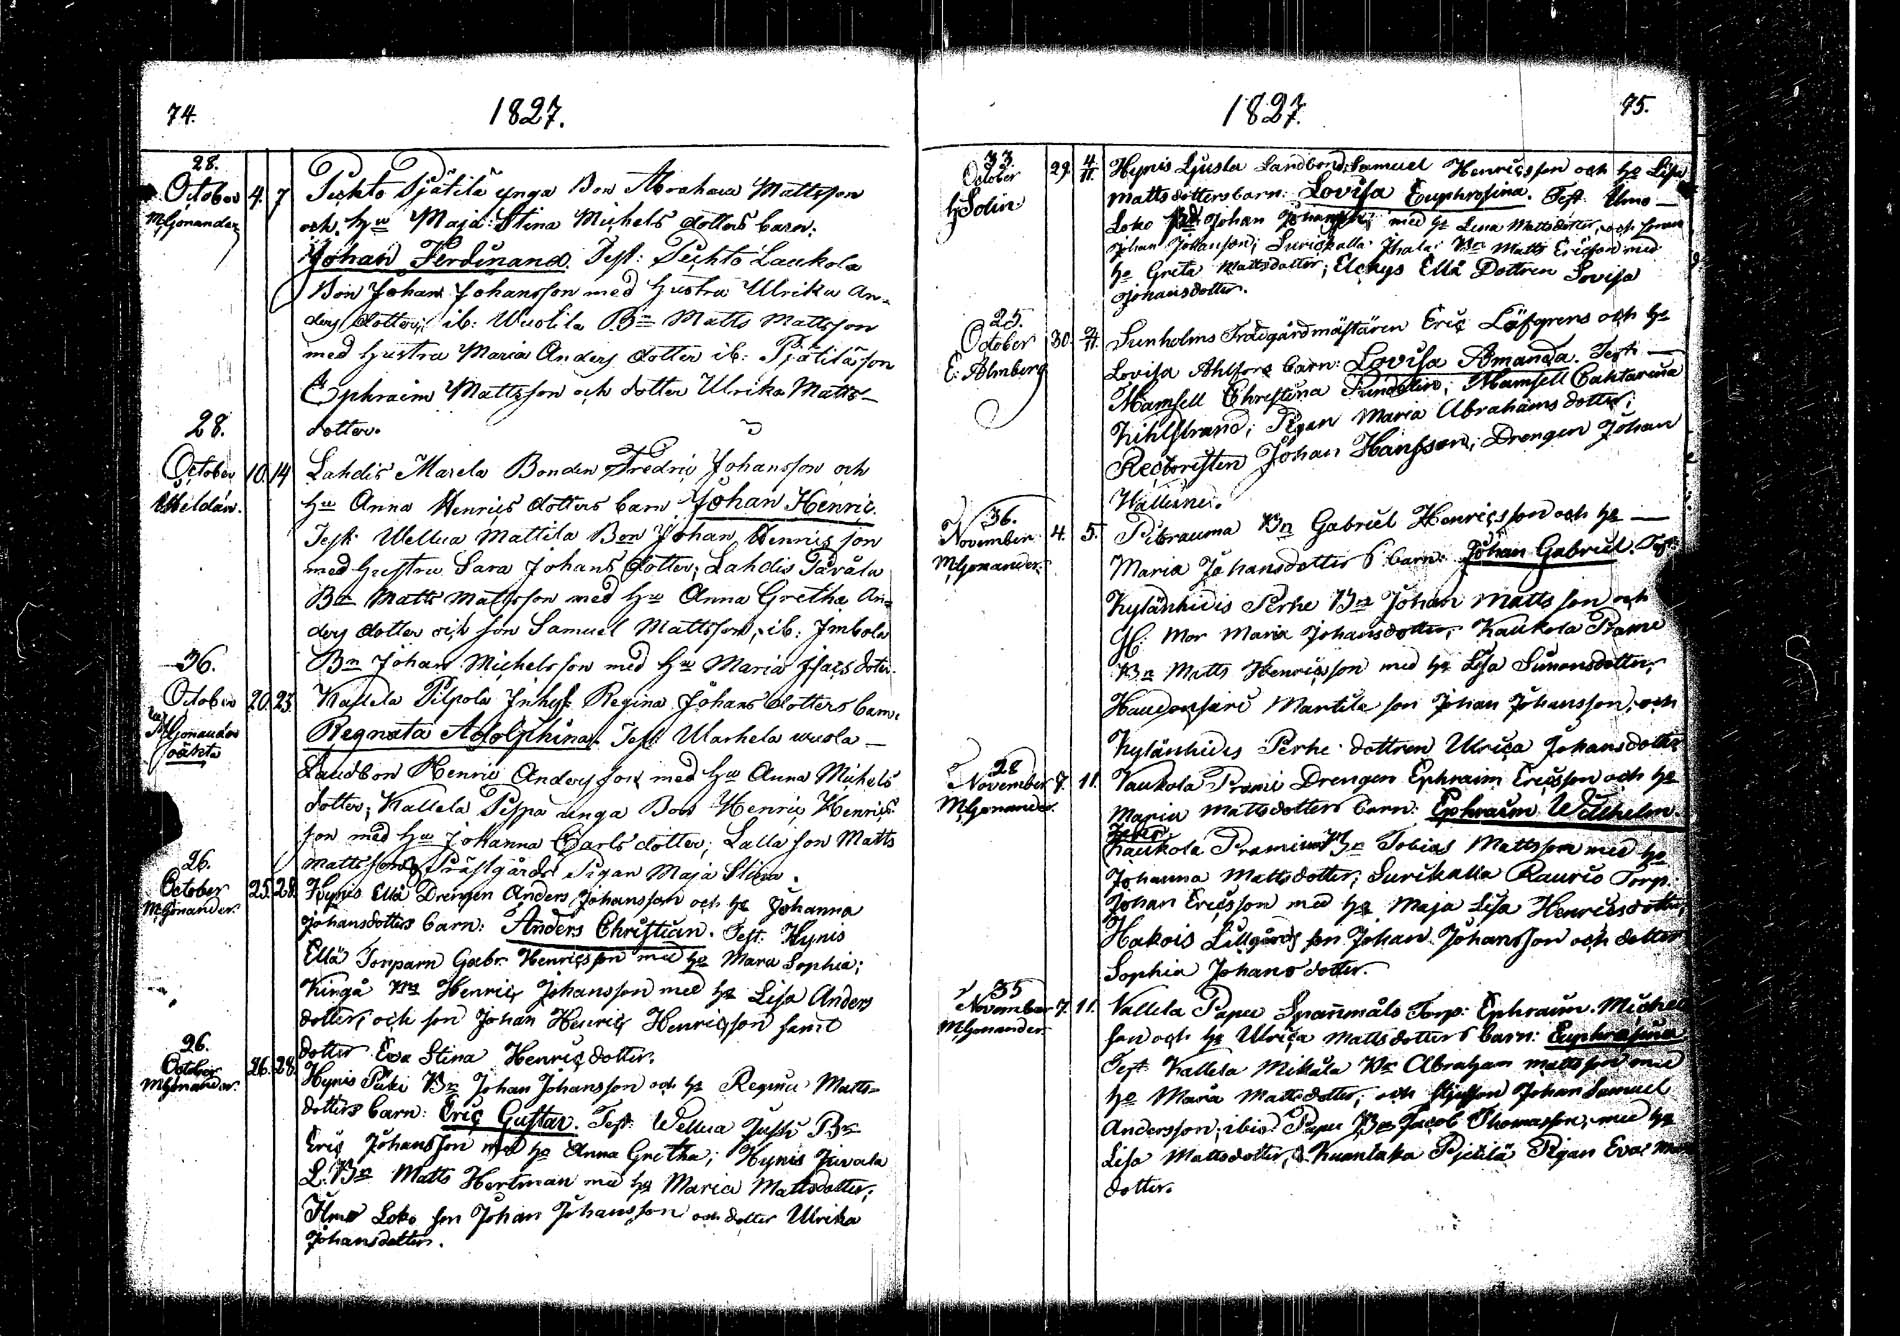 74.
1827.
28.
October 4. 7
M. Gonander
Pechto Pjätilä ynga Bon Abraham Mattsson
och hu Maja Stina Michels dotters barn:
Johan Ferdinand. Test: Pechto Laukola
Bon Johan Johansson med hustru Ulrika An=
ders dotter; ib: Wuolila Bn Matts Mattsson
med hustru Maria Anders dotter ib: Pjätilä son
Ephraim Mattsson och dotter Ulrika Matts-
dotter.
28.
October 10. 14
Lahdis Marela Bonden Fredric Johansson och
hu Anna Henrics dotters barn Johan Henric.
Test: Wellua Mattila Bon Johan Henricsson
med hustru Sara Johans dotter; Lahdis Pävälä
Bn Matts Mattsson med hu Anna Gretha An=
ders dotter och son Samuel Mattsson, ib: Imbola
Bn Johan Michelsson med hu Maria Isacs dotter.
36.
October 20. 23.
Gonander
oäkta
Kallela Pilpola Inhys Regina Johans dotters barn.
Regnata Adolphina. Test: Warhela wuola
Landbon Henric Andersson med hu Anna Michels
dotter; Kallela Pippa unga Bon Henric Henrics
son med hu Johanna Carls dotter; Lalla son Matts
Mattsson Prästgårds Pigan Maja Stina.
26.
October 25. 28.
M. Gonander.
Hynis Ellä Drengen Anders Johansson och ha Johanna
Johansdotters barn: Anders Christian. Test: Hynis
Ellä Torparn Gabr. Henricsson med ha Maria Sophia;
Kingå Bn Henric Johansson med ha Lisa Anders
dotter, och son Johan Henric Henricsson samt
dotter Eva Stina Henrics dotter.
26.
October 26. 28.
M. Gonander.
Hynis Päki Bn Johan Johansson och ha Regina Matts=
dotters barn: Eric Gustav. Test: Wellua Jussi Bn
Eric Johansson med ha Anna Gretha; Hynis Juvala
L. Bn Matts Hertman med ha Maria Mattsdotter;
Ilmo Loko son Johan Johansson och dotter Ulrika
Johansdotter.
1827.
75.
33.
October 29. 4/11
Solin
Hynis Ljusla Landbond. Samuel Henricsson och ha Lisa
Mattsdotters barn: Lovisa Euphrosina. Test: Ilmo
Loko Bn Johan Johansson med ha Lena Mattsdotter, och sonen
Johan Johansson; Surickalla Ihala Bn Matts Ericsson med
ha Greta Mattsdotter; Elckys Ellä Dottren Lovisa
Johansdotter.
25.
October 30. 2/11
E. Almberg
Sunholms Trädgårdmästaren Eric Löfgrens och ha
Lovisa Ahlfors barn: Lovisa Amanda. Test:
Mamsell Christina Sundelin; Mamsell Cahtarina
Kihlstrand; Pigan Maria Abrahams dotter;
Rectoristen Johan Hansson; Drengen Johan
36.
November 4. 5.
M. Gonander.
Pibrauma Bn Gabriel Henricsson och ha
Maria Johansdotters barn: Johan Gabriel. Test:
Kylänhidis Perhe Bn Johan Mattsson och
Gl. Mor Maria Johansdotter; Kaukola Prami
Bn Matts Henricsson med ha Lisa Simonsdotter;
Haudonsari Martila son Johan Johansson, och
Kylänhidis Perhe dottren Ulrica Johansdotter
28
November 7. 11.
M. Gonander.
Kaukola Prami Drengen Ephraim Ericsson och ha
Maria Mattsdotters barn: Ephraim Willhelm.
Kaukola Prami Bn Tobias Mattsson med ha
Johanna Mattsdotter; Surikalla Raurio Torp.
Johan Ericsson med ha Maja Lisa Henricsdotter;
Hakois Lillgårds son Johan Johansson och dotter
Sophia Johans dotter.
35
November 7. 11.
M. Gonander.
Kallela Papu Spanmåls Torp: Ephraim Michel
son och ha Ulrica Mattsdotters barn: Euphrosina
Test: Kallela Mikåla Bn Abraham Mattsson med
ha Maria Mattsdotter; och Johan Samuel
Andersson; ibid Papu Bn Jacob Thomasson, med ha
Lisa Mattsdotter, Kuanlaka Pjätilä Pigan Eva
dotter.